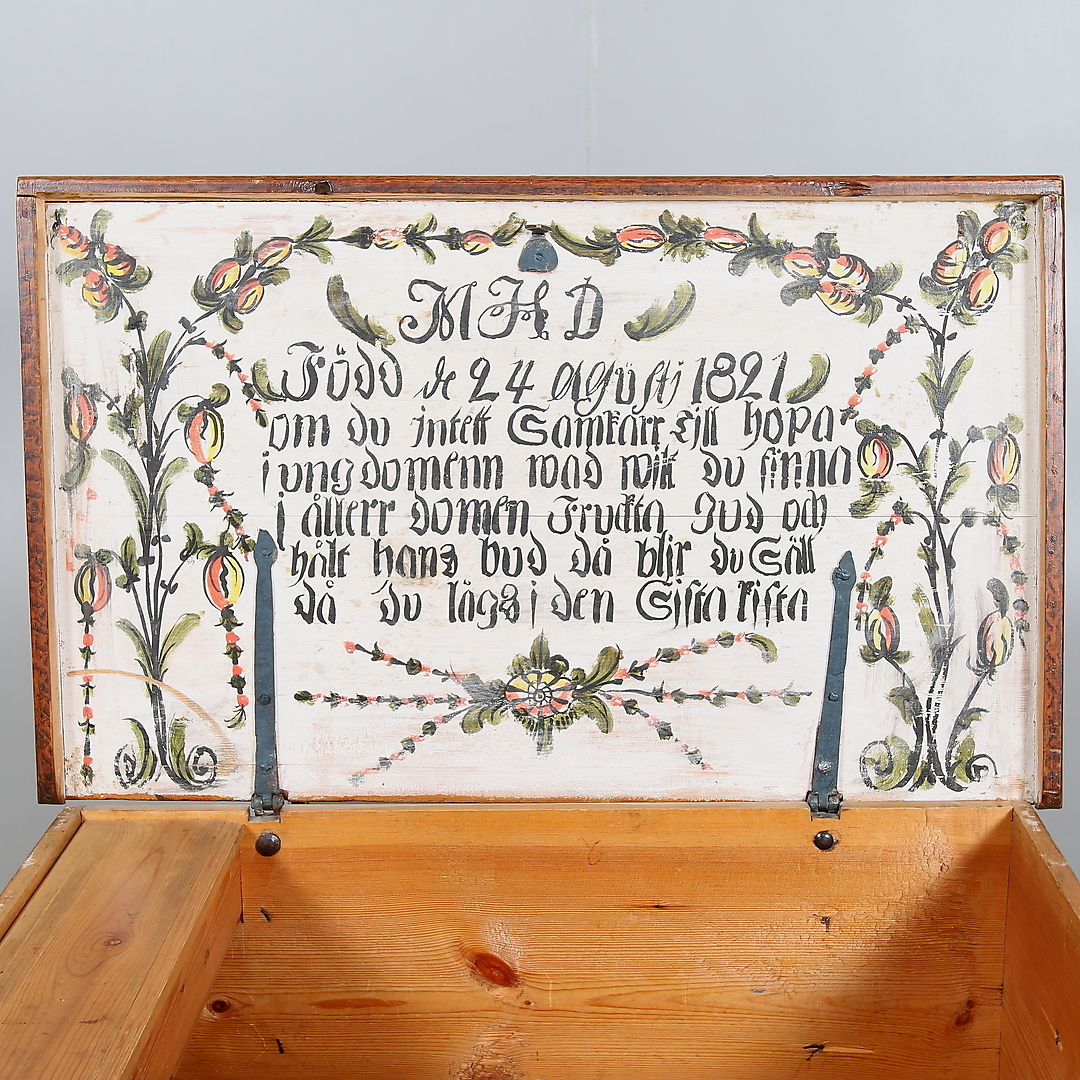 M H D
Född de 24 agüsti 1821
om du intett Samkarr till hopa
i ungdomenn wad witt du finna
i ållerr domen Fruckta Gud och
hålt hans bud då blir du Säll
då du lägs i den Sista kista